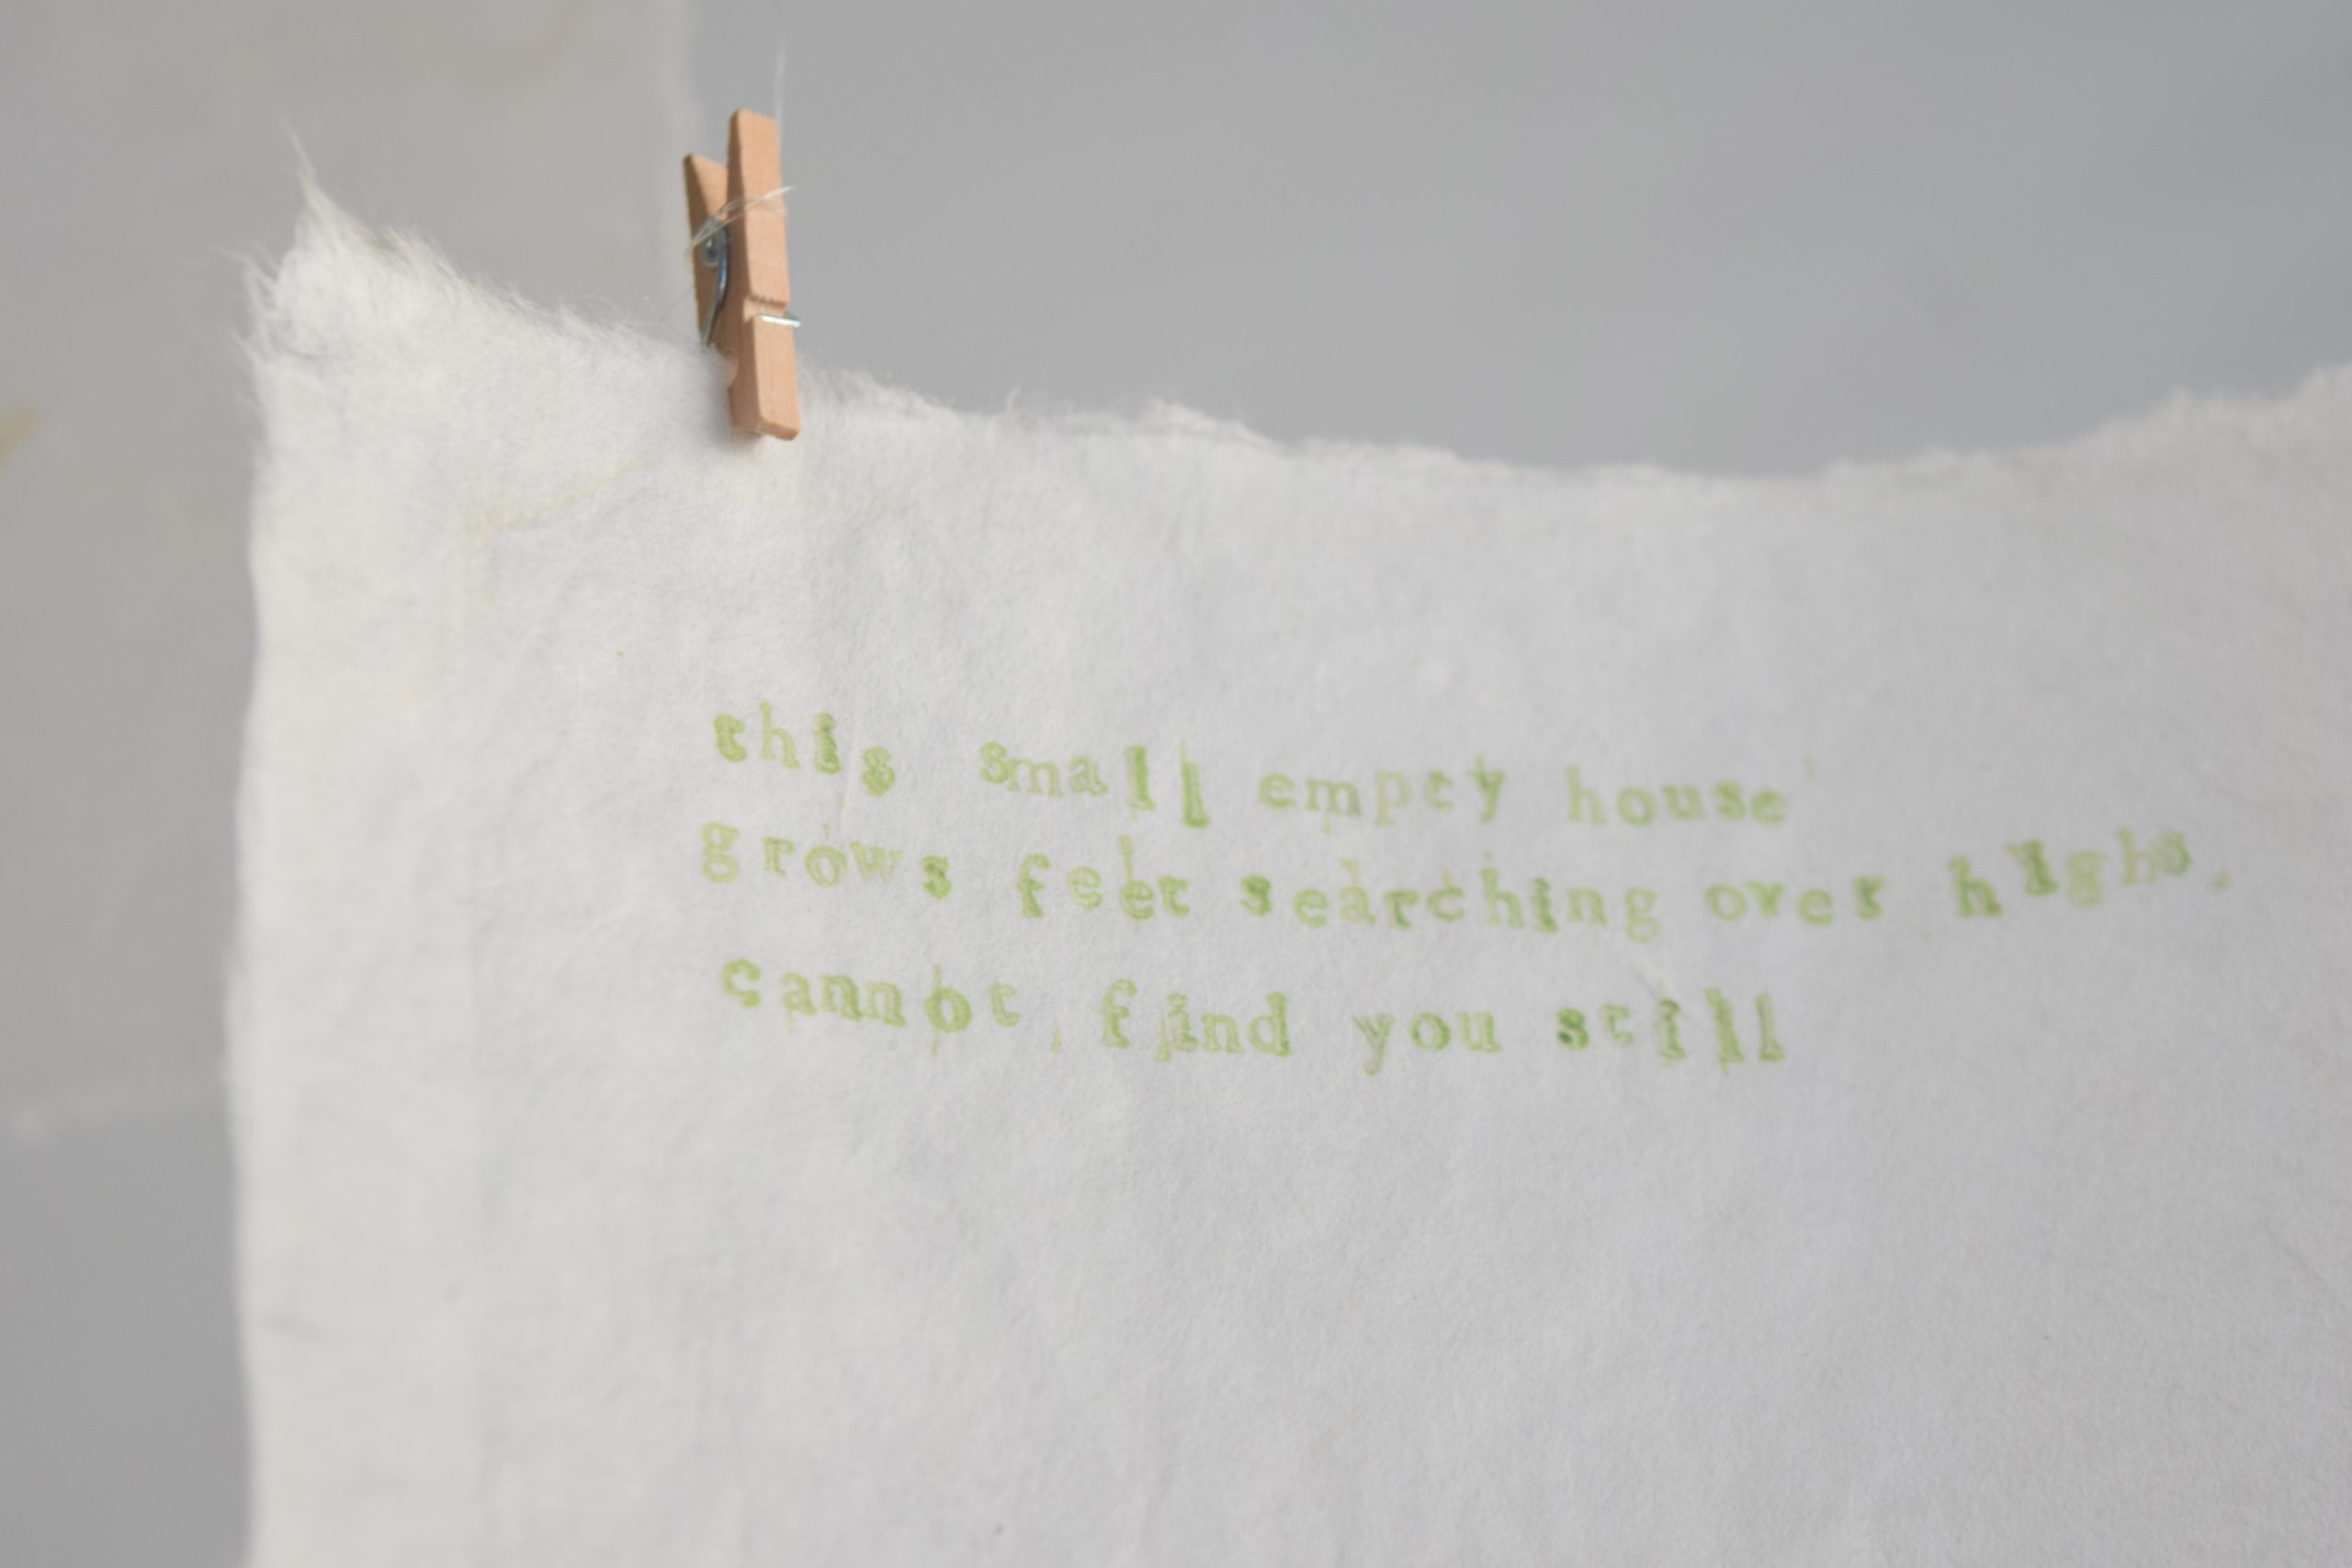 this small empty house
grows feet searching over highs
cannot find you still